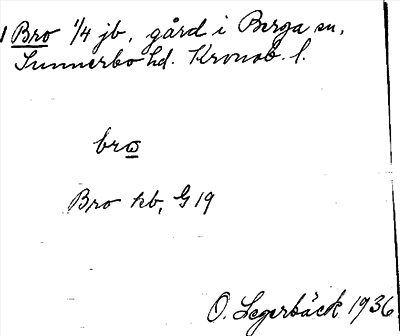 1 Bro 1/4 jb, gård i Berga sn,
Sunnerbo hd. Kronob. l.
bro
Bro kb, G 19
O. Legerbäck 1936